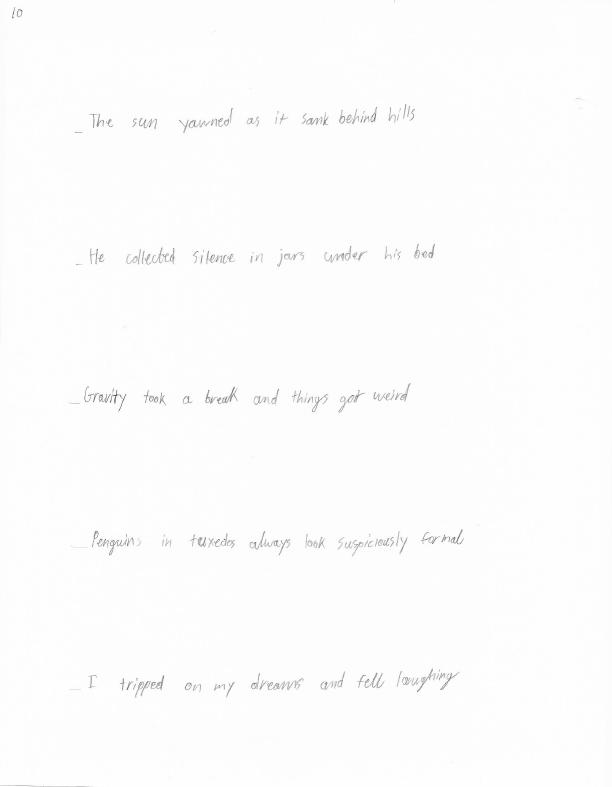 10
_ The sun yawned as it sank behind hills
_ He collected silence in jars under his bed
_ Gravity took a break and things got weird
_ Penguins in tuxedos always look suspiciously formal
_ I tripped on my dreams and fell laughing